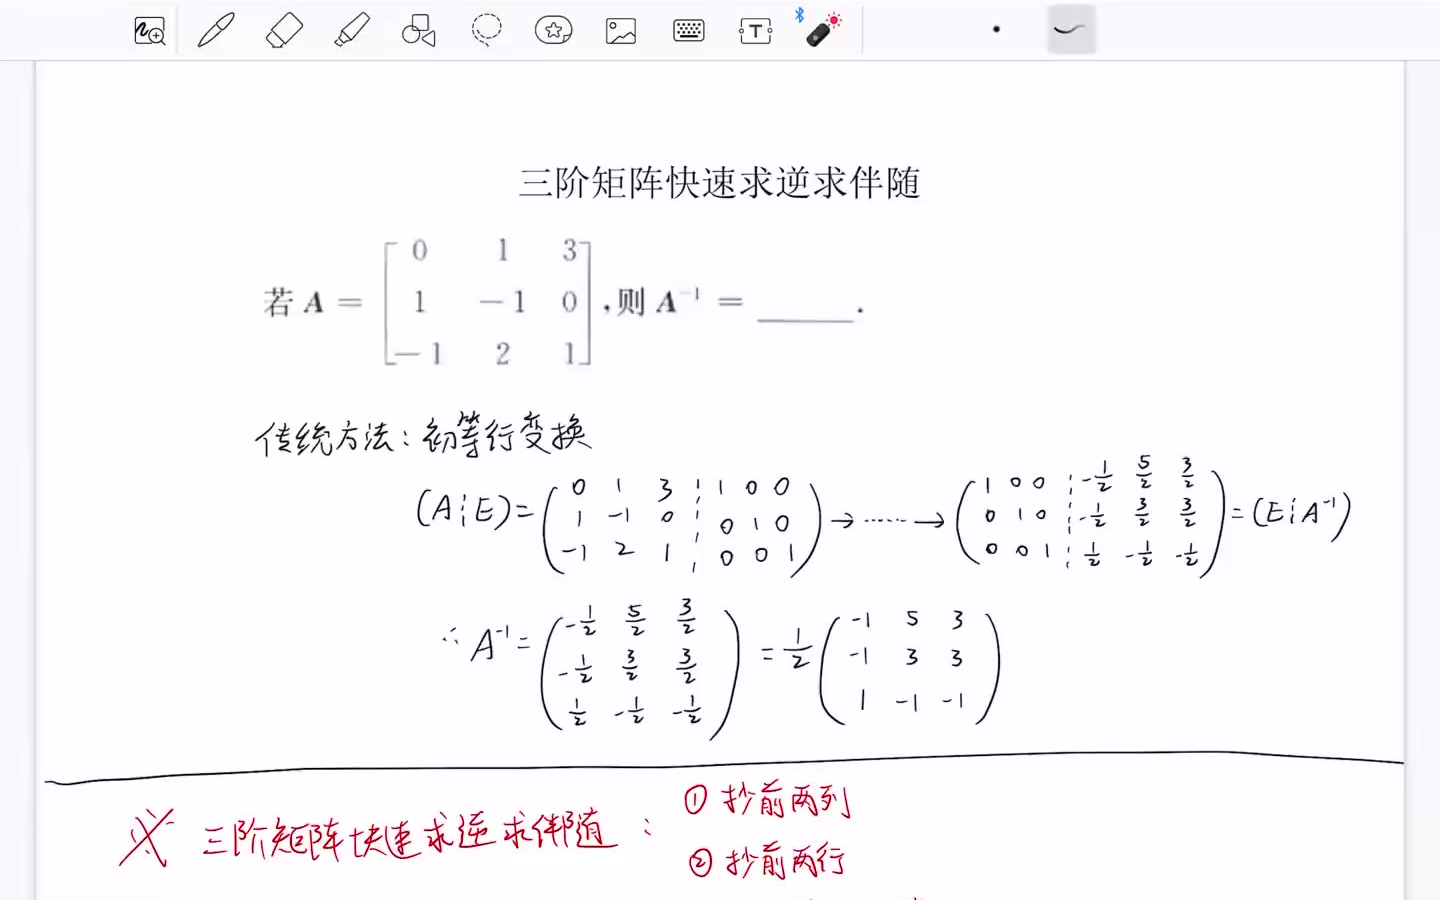 三阶矩阵快速求逆求伴随
若 A = [0 1 3; 1 -1 0; -1 2 1], 则 A⁻¹ = ______.
传统方法: 初等行变换
(A┆E) = (0 1 3 ┆ 1 0 0; 1 -1 0 ┆ 0 1 0; -1 2 1 ┆ 0 0 1) → ······ → (1 0 0 ┆ -1/2 5/2 3/2; 0 1 0 ┆ -1/2 3/2 3/2; 0 0 1 ┆ 1/2 -1/2 -1/2) = (E┆A⁻¹)
∴ A⁻¹ = (-1/2 5/2 3/2; -1/2 3/2 3/2; 1/2 -1/2 -1/2) = 1/2 (-1 5 3; -1 3 3; 1 -1 -1)
三阶矩阵快速求逆求伴随:
① 抄前两列
② 抄前两行